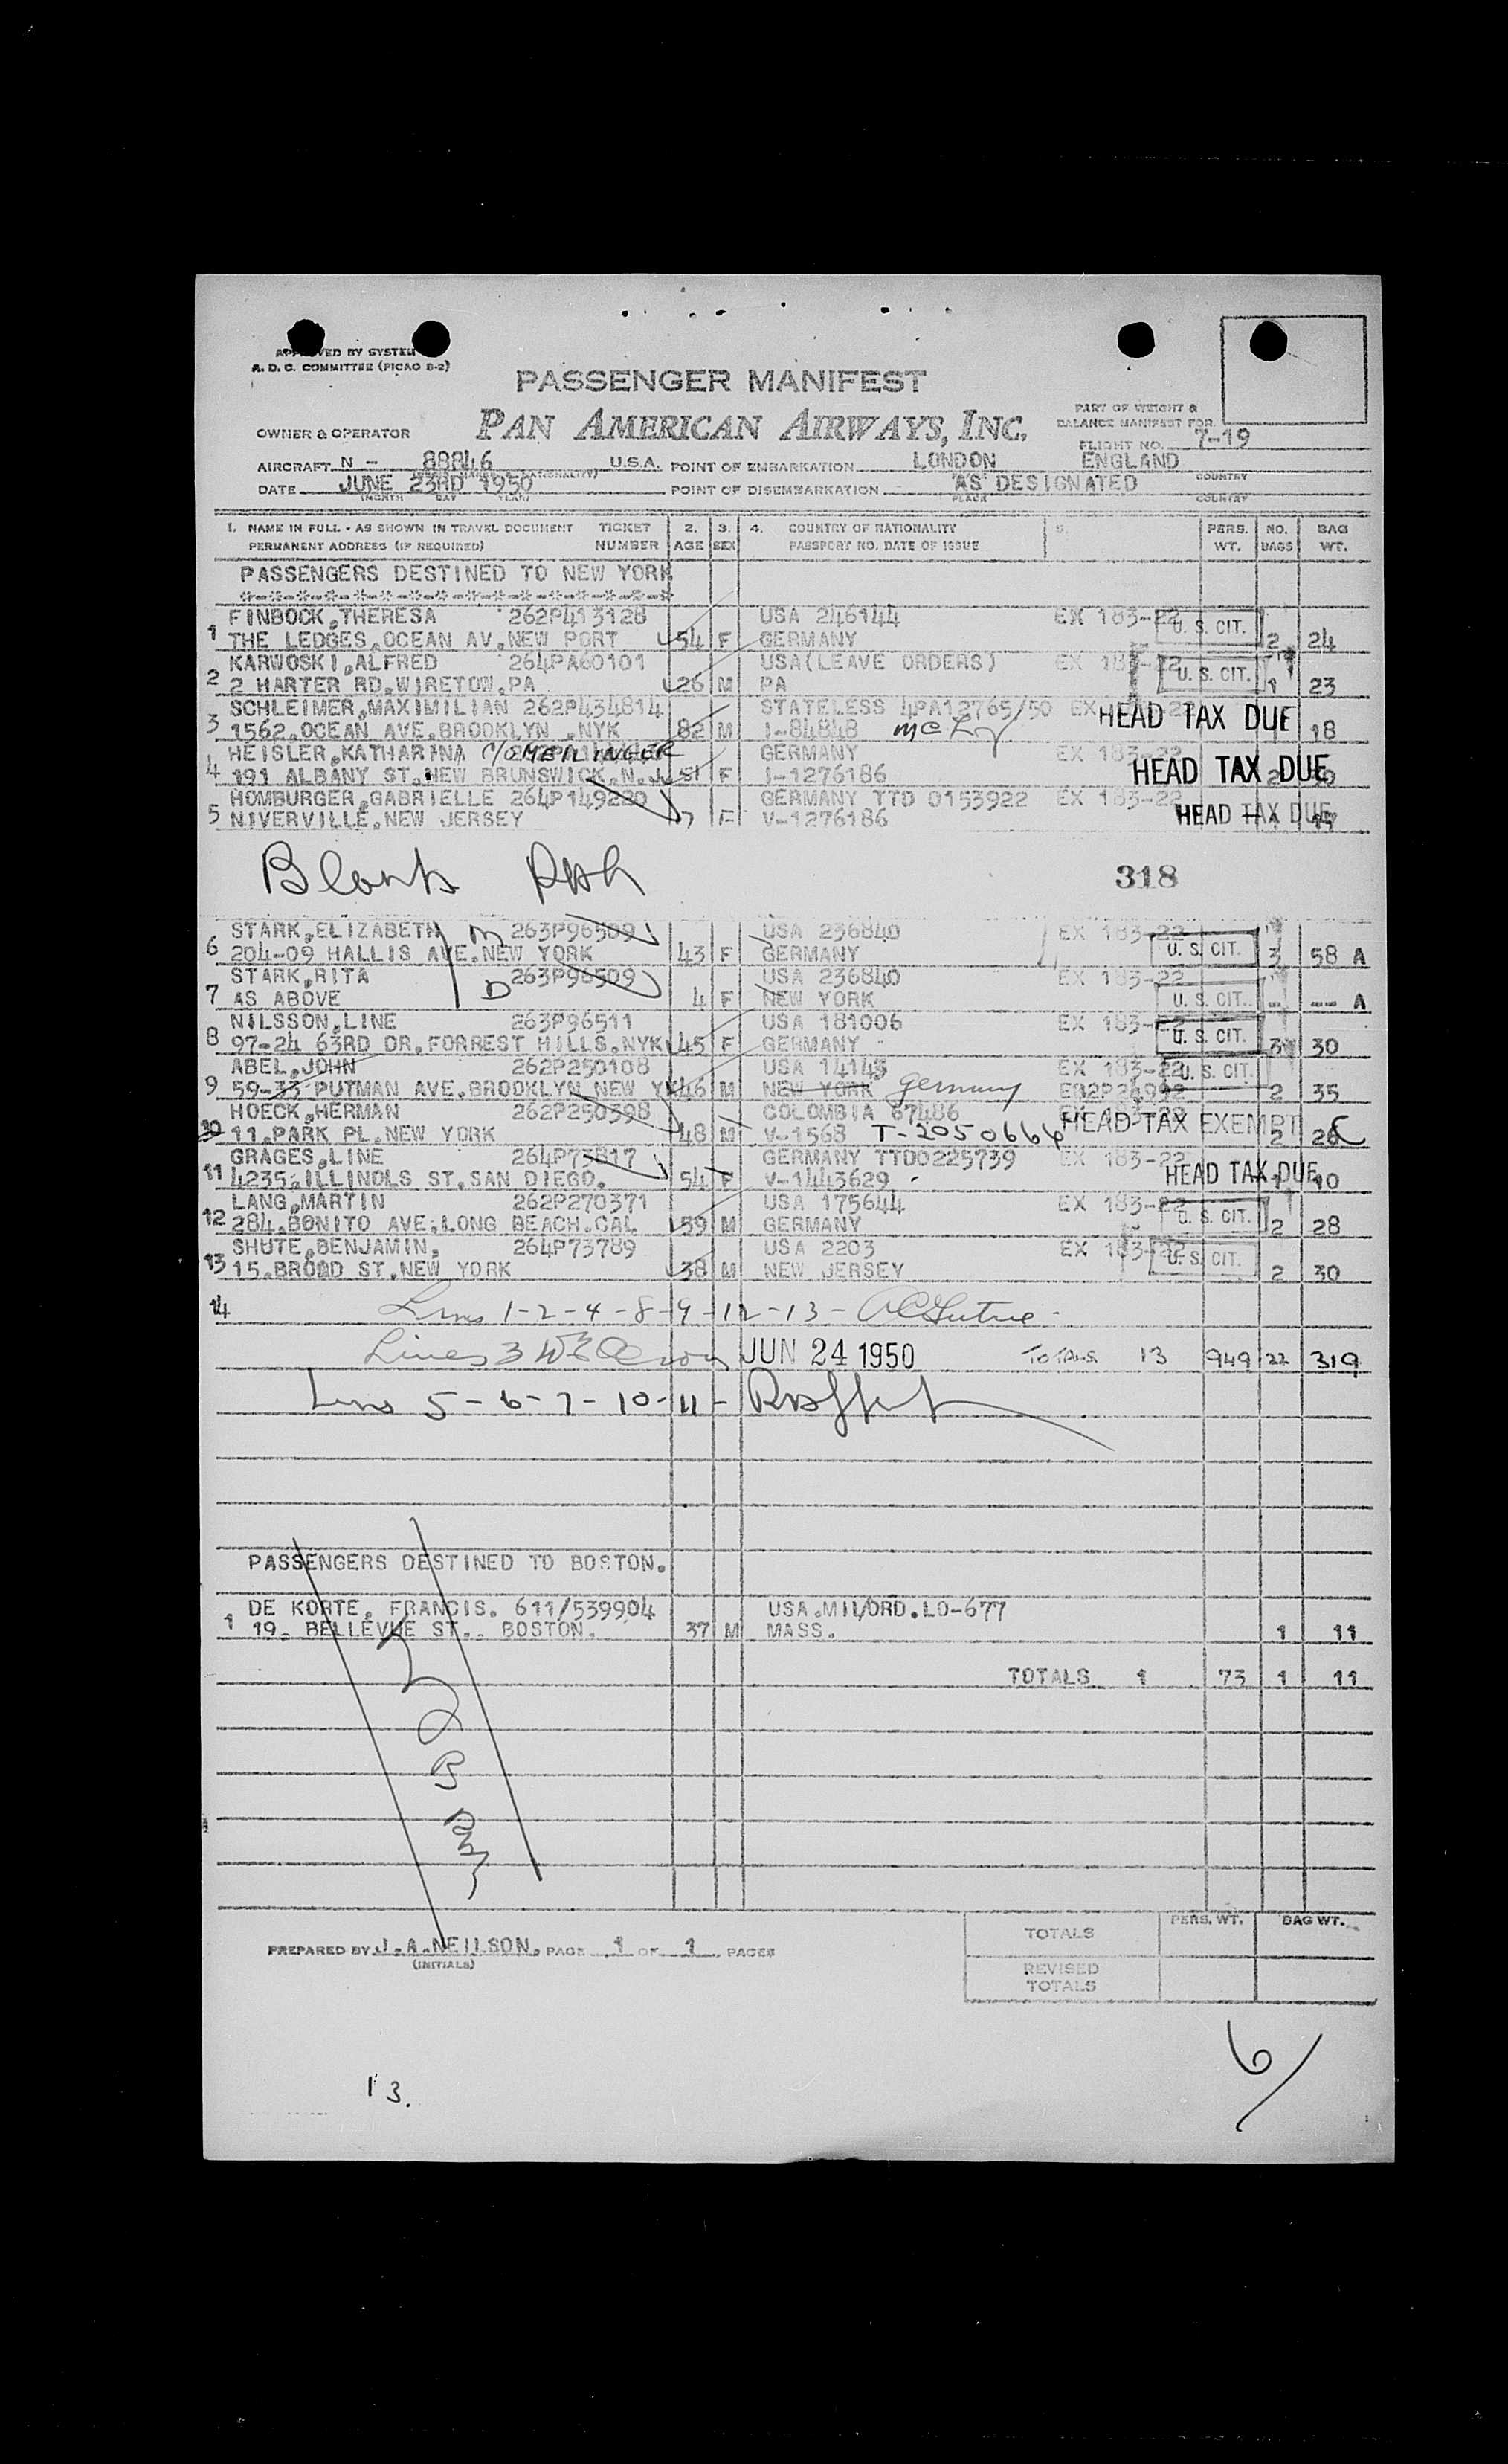 APPROVED BY SYSTEM
A. D. C. COMMITTEE (PICAO B-2)
PASSENGER MANIFEST
OWNER & OPERATOR PAN AMERICAN AIRWAYS, INC.
PART OF WEIGHT &
BALANCE MANIFEST FOR
FLIGHT NO. 7-19
AIRCRAFT N - 88846 U.S.A. POINT OF EMBARKATION LONDON ENGLAND
DATE JUNE 23RD 1950 POINT OF DISEMBARKATION AS DESIGNATED COUNTRY
(MONTH DAY YEAR) PLACE COUNTRY
1. NAME IN FULL - AS SHOWN IN TRAVEL DOCUMENT TICKET 2. 3. 4. COUNTRY OF NATIONALITY 5. PERS. NO. BAG
PERMANENT ADDRESS (IF REQUIRED) NUMBER AGE SEX PASSPORT NO. DATE OF ISSUE WT. BAGS WT.
PASSENGERS DESTINED TO NEW YORK
*-*-*-*-*-*-*-*-*-*-*-*-*-*-*
FINBOCK,THERESA 262P413128 USA 246144 EX 183-22 U. S. CIT.
1 THE LEDGES,OCEAN AV.NEW PORT 54 F GERMANY 2 24
KARWOSKI,ALFRED 264PA60101 USA(LEAVE ORDERS) EX 183-22 U. S. CIT.
2 2 HARTER RD.WIRETOW.PA 26 M PA 1 23
SCHLEIMER,MAXIMILIAN 262P434814 STATELESS 4PA12765/50 EX HEAD TAX DUE
3 1562.OCEAN AVE.BROOKLYN .NYK 82 M I-84848 18
HEISLER,KATHARINA C/O MEHLINGER GERMANY EX 183-22
4 191 ALBANY ST.NEW BRUNSWICK.N.J. 51 F I-1276186 HEAD TAX DUE
HOMBURGER,GABRIELLE 264P149220 GERMANY TTD 0153922 EX 183-22
5 NIVERVILLE.NEW JERSEY 7 F V-1276186 HEAD TAX DUE
318
STARK,ELIZABETH M 263P96509 USA 236840 EX 183-22
6 204-09 HALLIS AVE.NEW YORK 43 F GERMANY U. S. CIT. 3 58 A
STARK,RITA D 263P96509 USA 236840 EX 183-22
7 AS ABOVE 4 F NEW YORK U. S. CIT. -- --- A
NILSSON,LINE 263P96511 USA 181006 EX 183-22
8 97-24 63RD DR.FORREST HILLS.NYK 45 F GERMANY U. S. CIT. 3 30
ABEL,JOHN 262P250108 USA 14145 EX 183-22 U. S. CIT.
9 59-33 PUTMAN AVE.BROOKLYN NEW YK 46 M NEW YORK Germany 2 35
HOECK,HERMAN 262P250398 COLOMBIA 67486 HEAD TAX EXEMPT
10 11.PARK PL.NEW YORK 48 M V-1568 T-2050664 2 26
GRAGES,LINE 264P73817 GERMANY TTD0225739 EX 183-22
11 4235.ILLINOLS ST.SAN DIEGO. 54 F V-1443629 HEAD TAX DUE 10
LANG,MARTIN 262P270371 USA 175644 EX 183-22 U. S. CIT.
12 284.BONITO AVE.LONG BEACH.CAL 59 M GERMANY 2 28
SHUTE,BENJAMIN. 264P73789 USA 2203 EX 183-22 U. S. CIT.
13 15.BROAD ST.NEW YORK 38 M NEW JERSEY 2 30
14 Lines 1-2-4-8-9-12-13-
Lines 3 JUN 24 1950 TOTALS 13 949 22 319
Lines 5-6-7-10-11-
PASSENGERS DESTINED TO BOSTON.
DE KORTE, FRANCIS. 611/539904 USA.MIL/ORD.LO-677
1 19. BELLEVUE ST.. BOSTON. 37 M MASS. 1 11
TOTALS 1 73 1 11
PREPARED BY J.A.NEILSON. PAGE 1 OF 1 PAGES
(INITIALS)
TOTALS PERS. WT. BAG WT.
REVISED
TOTALS
6/
13.